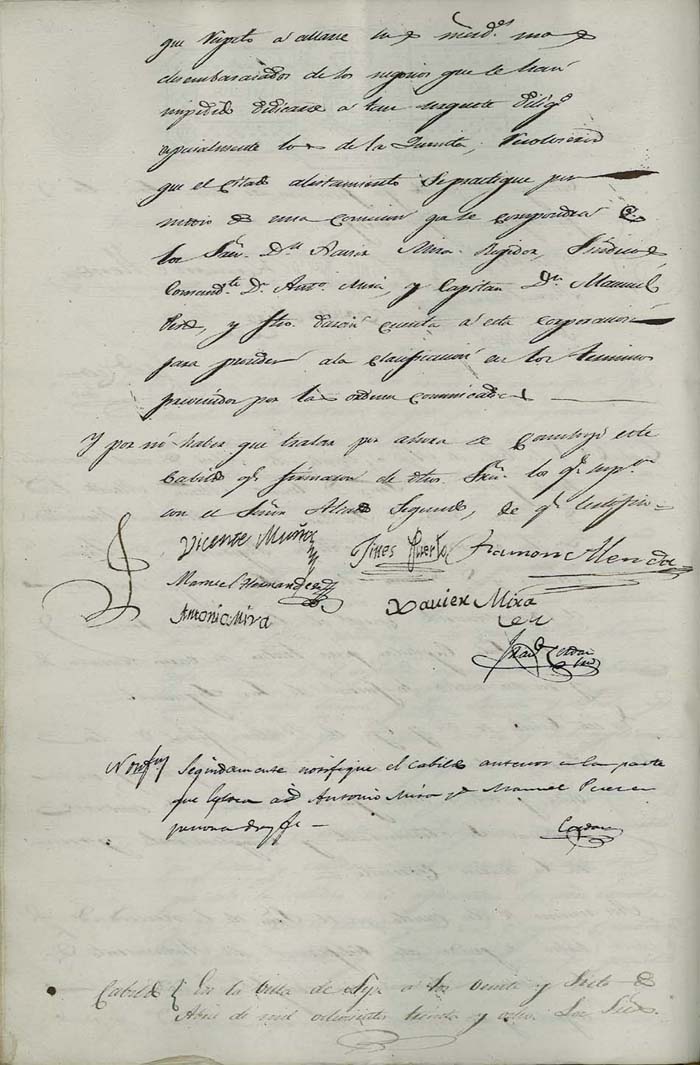 que respeto a allarse los Señores mas
desembarasados de los negocios que le han
impedido dedicarse a tan urgente diligª
especialmente los de la Quinta, resolvieron
que el citado alistamiento se practique por
medio de una comicion qe. se compondra de
los Sres. Dn. Xavier Mira Regidor, Sindico
Comandte. Dn. Anto. Mira, y Capitan Dn. Manuel
Perez, y fho. daran cuenta a esta corporacion
para proceder a la clasificacion en los terminos
prevenidos por las ordenes comunicadas
Y por no haber que tratar por ahora se concluyó este
Cabildo qe. firmaron de dhos. Sres. los qe. supon
con el Señor Alcalde Segundo, de qe. certifico
Vicente Muñoz Gines Puerto Ramon Alenda
Manuel Hernandez
Antonio Mira Xavier Mira
Cordon
Seguidamente notifique el Cabildo anterior en la parte
que a Dn. Antonio Mira y Dn. Manuel Perez en
persona doy fe
Cordon
Cabildo En la Villa de a los veinte y siete de
Abril de mil ochocientos treinta y ocho. Los Sres.